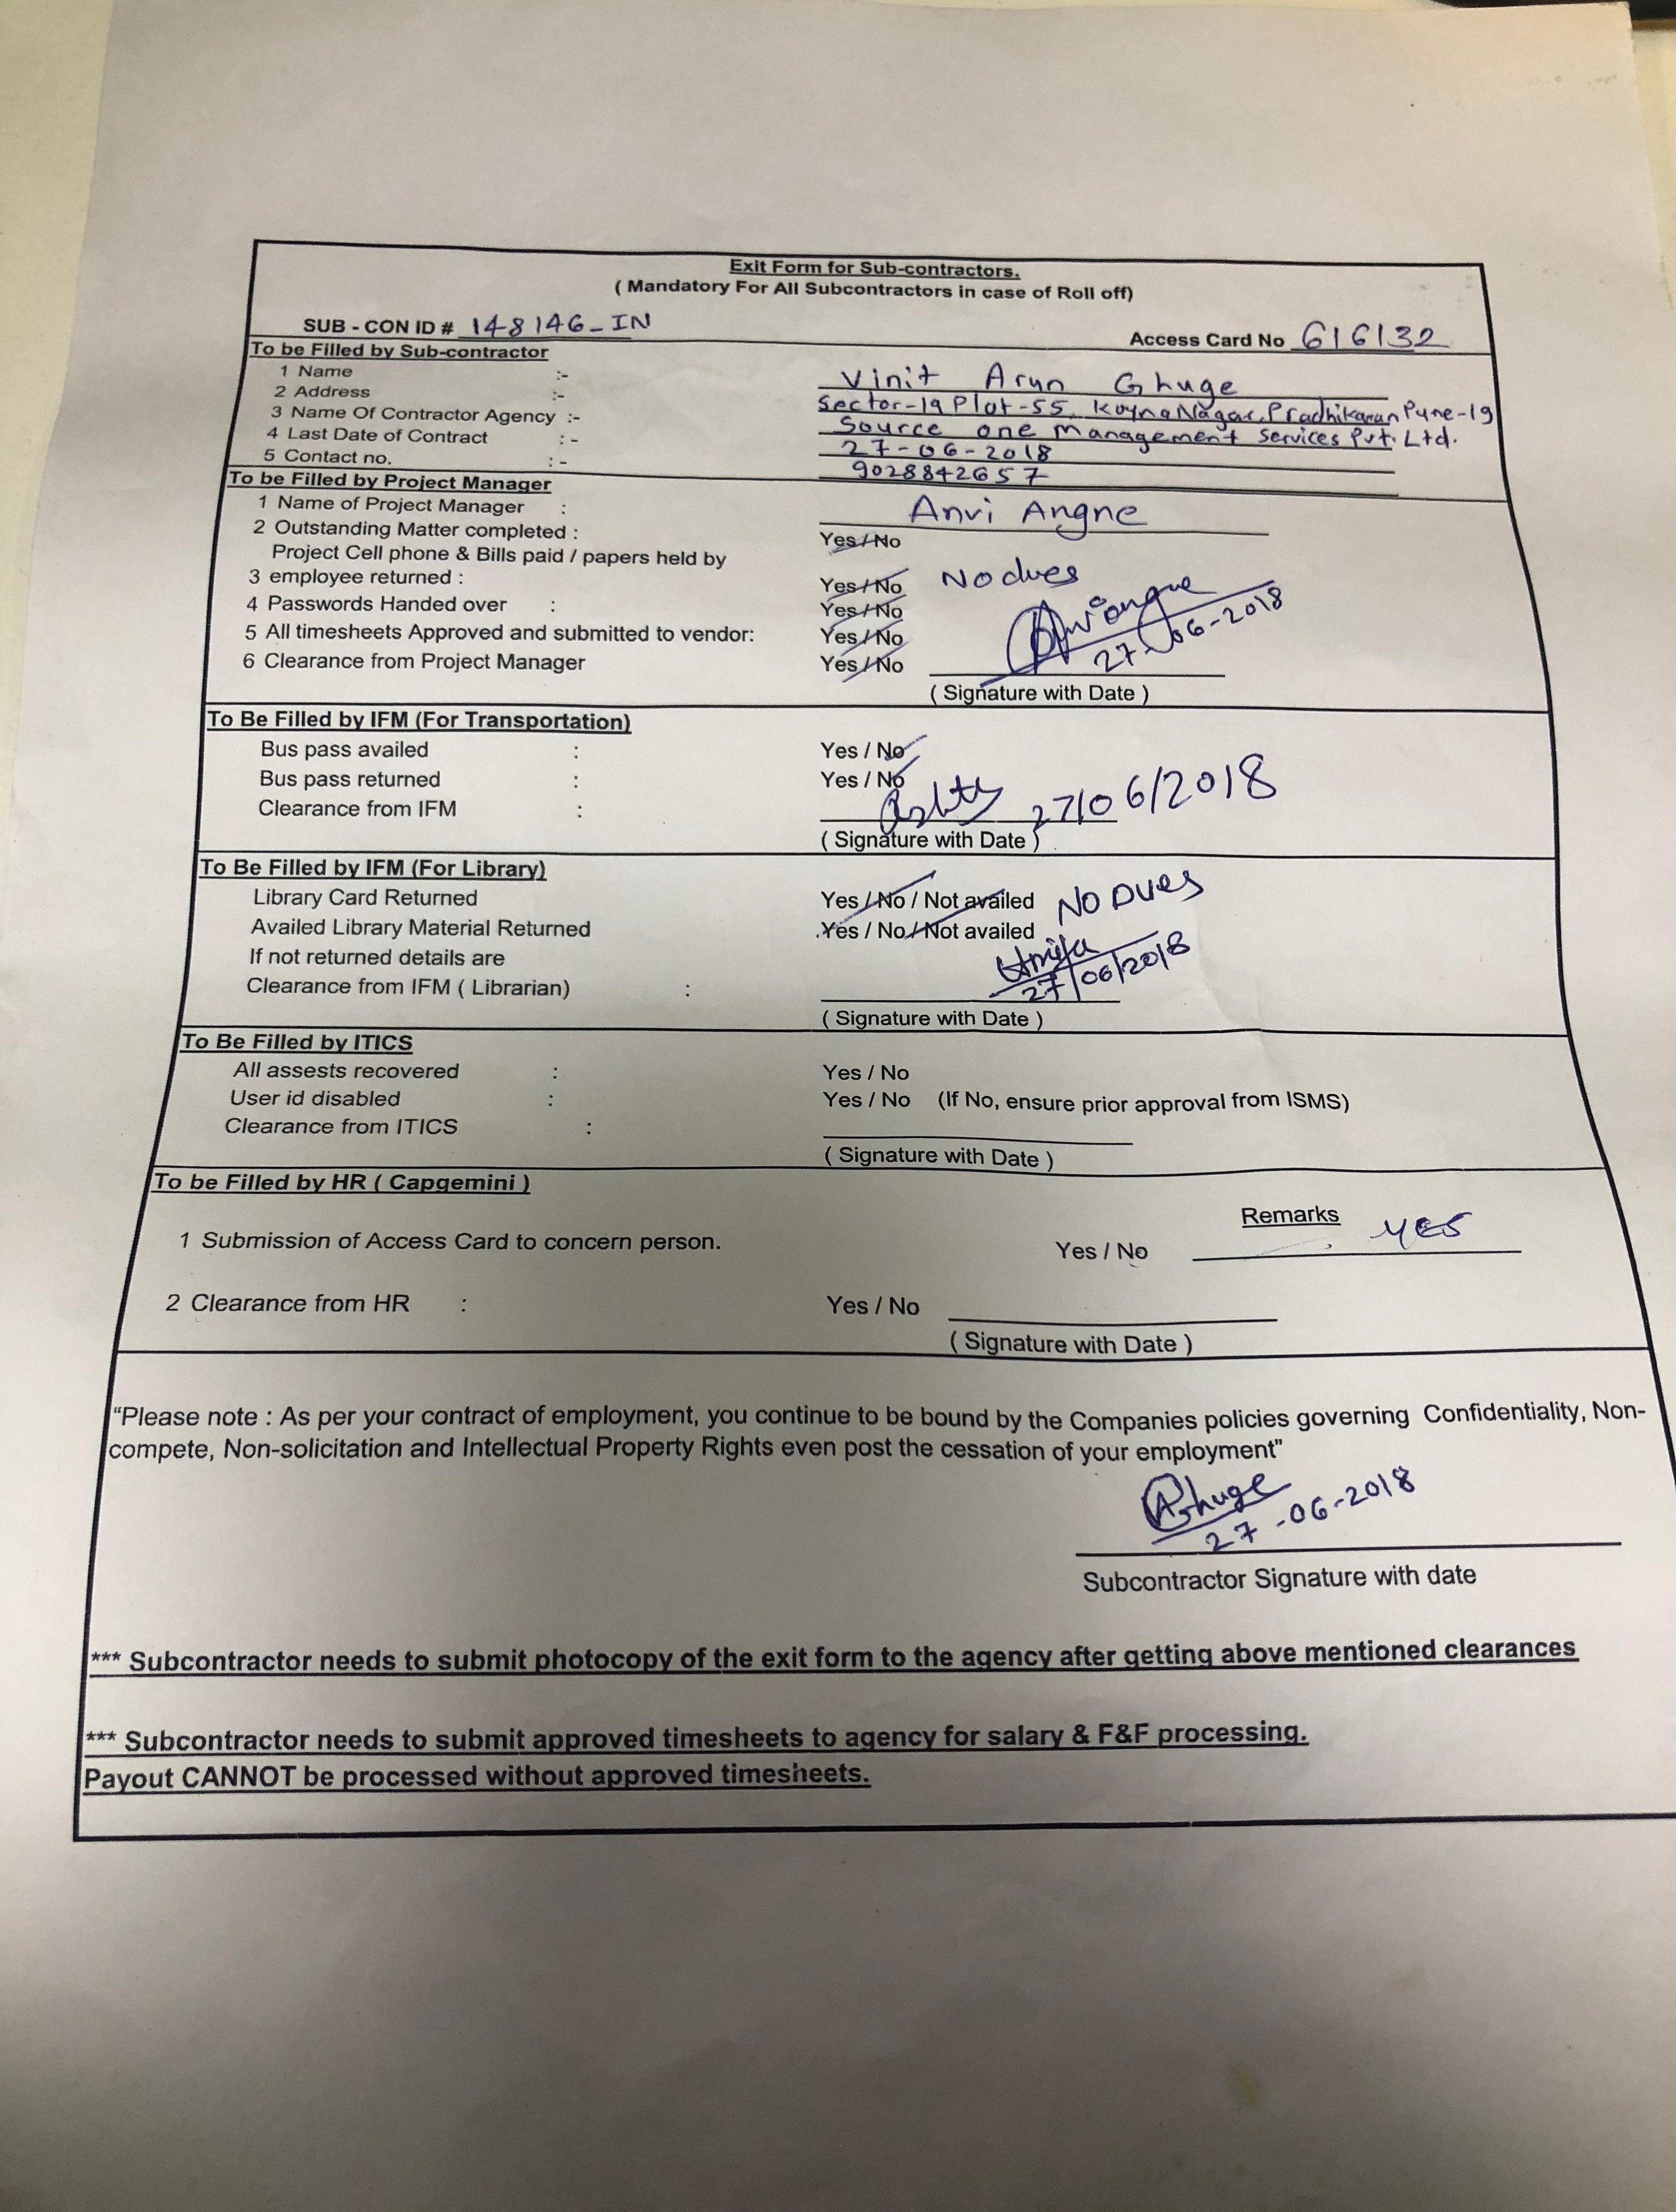 Exit Form for Sub-contractors.
( Mandatory For All Subcontractors in case of Roll off)
SUB - CON ID # 148146_IN Access Card No 616132
To be Filled by Sub-contractor
1 Name :- Vinit Arun Ghuge
2 Address :- Sector-19 Plot-55, Koyna Nagar, Pradhikaran Pune-19
3 Name Of Contractor Agency :- Source one Management Services Pvt. Ltd.
4 Last Date of Contract :- 27-06-2018
5 Contact no. :- 9028842657
To be Filled by Project Manager
1 Name of Project Manager : Anvi Angne
2 Outstanding Matter completed : Yes/No
Project Cell phone & Bills paid / papers held by
3 employee returned : Yes/No No dues
4 Passwords Handed over : Yes/No
5 All timesheets Approved and submitted to vendor: Yes/No
6 Clearance from Project Manager Yes/No 27-06-2018
( Signature with Date )
To Be Filled by IFM (For Transportation)
Bus pass availed : Yes / No
Bus pass returned : Yes / No
Clearance from IFM : 27/06/2018
( Signature with Date )
To Be Filled by IFM (For Library)
Library Card Returned Yes / No / Not availed NO DUES
Availed Library Material Returned Yes / No / Not availed
If not returned details are
Clearance from IFM ( Librarian) : 27/06/2018
( Signature with Date )
To Be Filled by ITICS
All assests recovered : Yes / No
User id disabled : Yes / No (If No, ensure prior approval from ISMS)
Clearance from ITICS :
( Signature with Date )
To be Filled by HR ( Capgemini )
Remarks
1 Submission of Access Card to concern person. Yes / No YES
2 Clearance from HR : Yes / No
( Signature with Date )
“Please note : As per your contract of employment, you continue to be bound by the Companies policies governing Confidentiality, Non-
compete, Non-solicitation and Intellectual Property Rights even post the cessation of your employment”
Ghuge
27-06-2018
Subcontractor Signature with date
*** Subcontractor needs to submit photocopy of the exit form to the agency after getting above mentioned clearances
*** Subcontractor needs to submit approved timesheets to agency for salary & F&F processing.
Payout CANNOT be processed without approved timesheets.